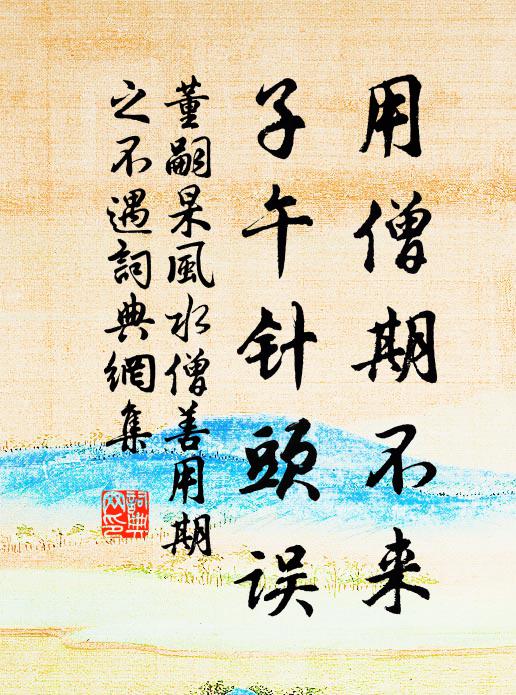 用僧期不来
子午针頭误
董嗣杲風水僧善用期
之不遇詞典網集